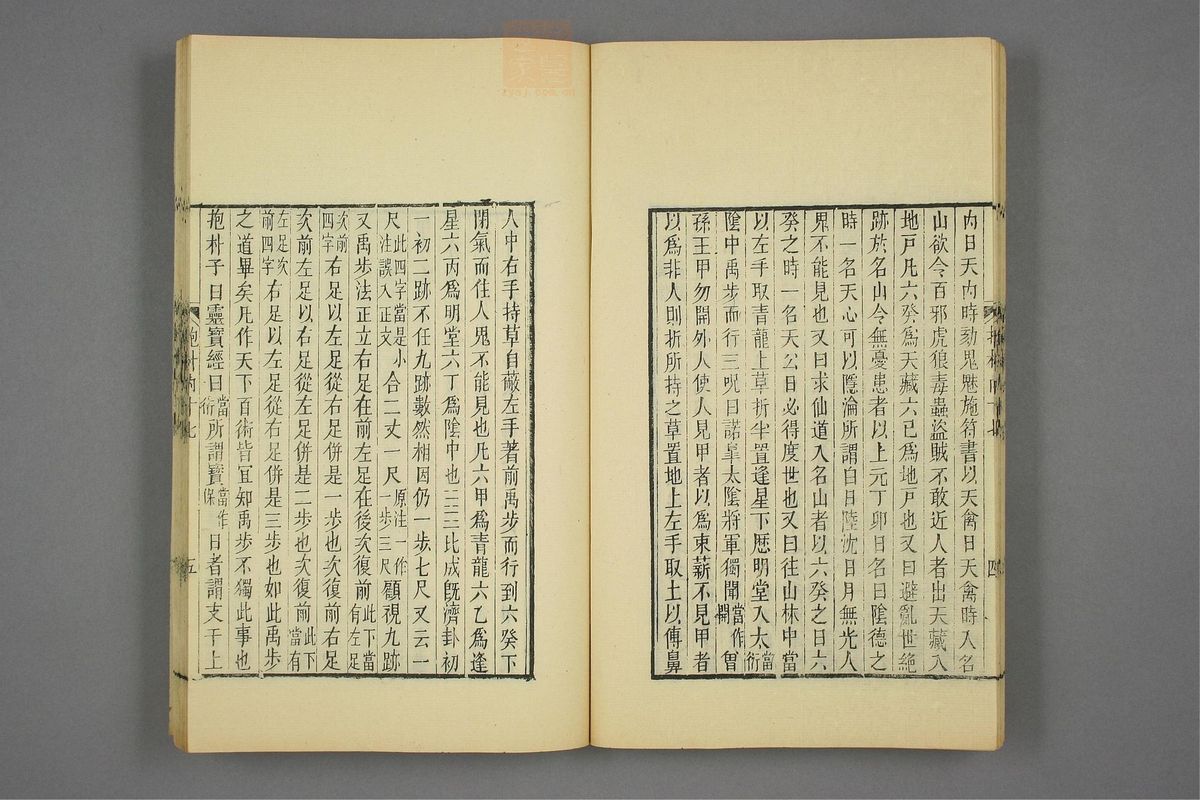 內日天內時劾鬼魅施符書以天禽日天禽時入名
山欲令百邪虎狼毒蟲盜賊不敢近人者出天藏入
地戸凡六癸爲天藏六已爲地戸也又曰避亂世絕
跡於名山令無憂患者以上元丁卯日名曰陰德之
時一名天心可以隱淪所謂白日陸沈日月無光人
鬼不能見也又曰求仙道入名山者以六癸之日六
癸之時一名天公日必得度世也又曰往山林中當
以左手取青龍上草折半置逢星下歷明堂入太當衍
陰中禹步而行三呪曰諾臯太陰將軍獨聞當作開曾
孫王甲勿開外人使人見甲者以爲束薪不見甲者
以爲非人則折所持之草置地上左手取土以傅鼻
四
人中右手持草自蔽左手著前禹步而行到六癸下
閉氣而住人鬼不能見也凡六甲爲青龍六乙爲逢
星六丙爲明堂六丁爲陰中也比成旣濟卦初
一初二跡不任九跡數然相因仍一步七尺又云一
尺此四字當是小注誤入正文合二丈一尺原注一作一步三尺顧視九跡
又禹步法正立右足在前左足在後次復前此下當有左足
次前四字右足以左足從右足併是一步也次復前右足
次前左足以右足從左足併是二步也次復前此下當有
左足次前四字右足以左足從右足併是三步也如此禹步
之道畢矣凡作天下百術皆宜知禹步不獨此事也
抱朴子曰靈寶經曰當衍所謂寶當作保日者謂支干上
抱朴內十七
五